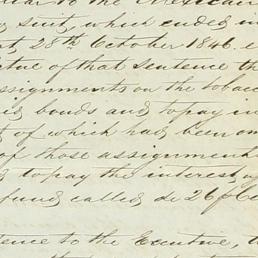 to the Mexican
suit, which ended in
28th October 1846. e
of that sentence th
assignments on the tobacc
bonds and to pay in
t of which had been om
of those assignment
d to pay the interest of
fund called de 26 p

tence to the Executive, t